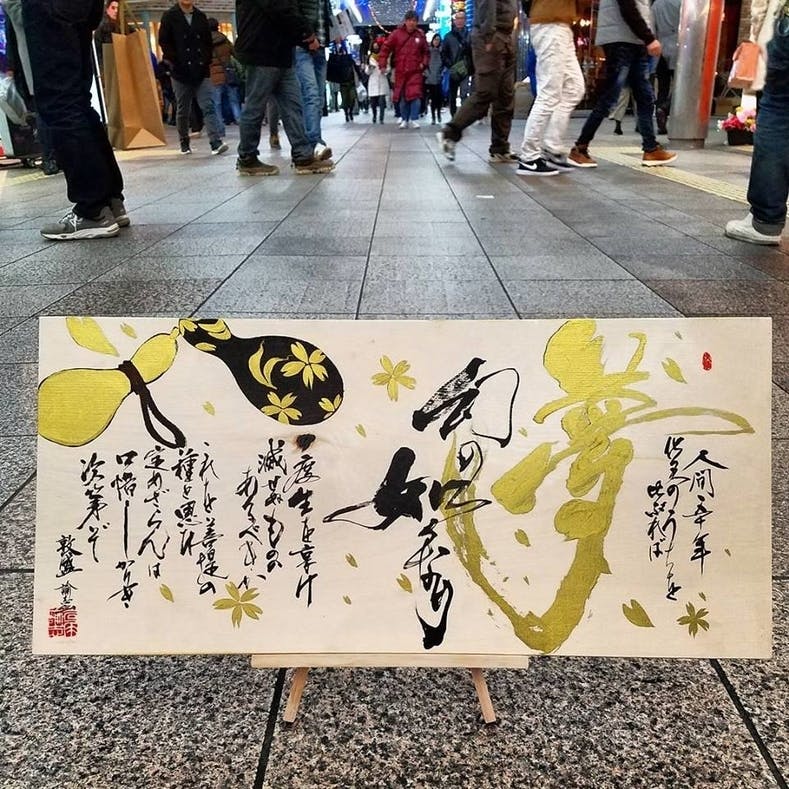 人間五十年
化天のうちを
比ぶれば
夢
幻の
如くなり
一度生を享け
滅せぬものの
あるべきか
これを菩提の
種と思ひ
定めざらんは
口惜しかりき
次第ぞ
敦盛